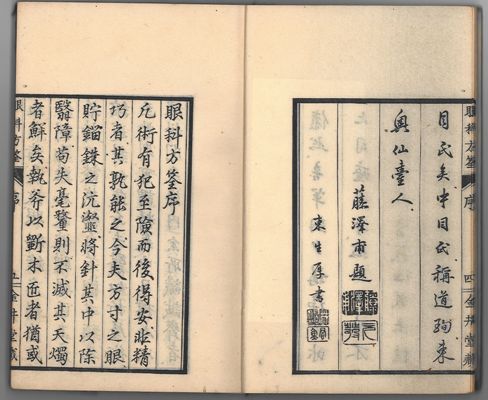 眼科方筌 序 四 金井堂藏
目氏矣中目氏稱道珣東
奥仙臺人
藤澤甫題
東生厚書
眼科方筌序
凡術有犯至險而後得安非精
巧者其孰能之今夫方寸之眼
貯錙銖之沆瀣將針其中以除
翳障苟失毫釐則不滅其天燭
者鮮矣執斧以斲木匠者猶或
眼科方筌 序 五 金井堂藏